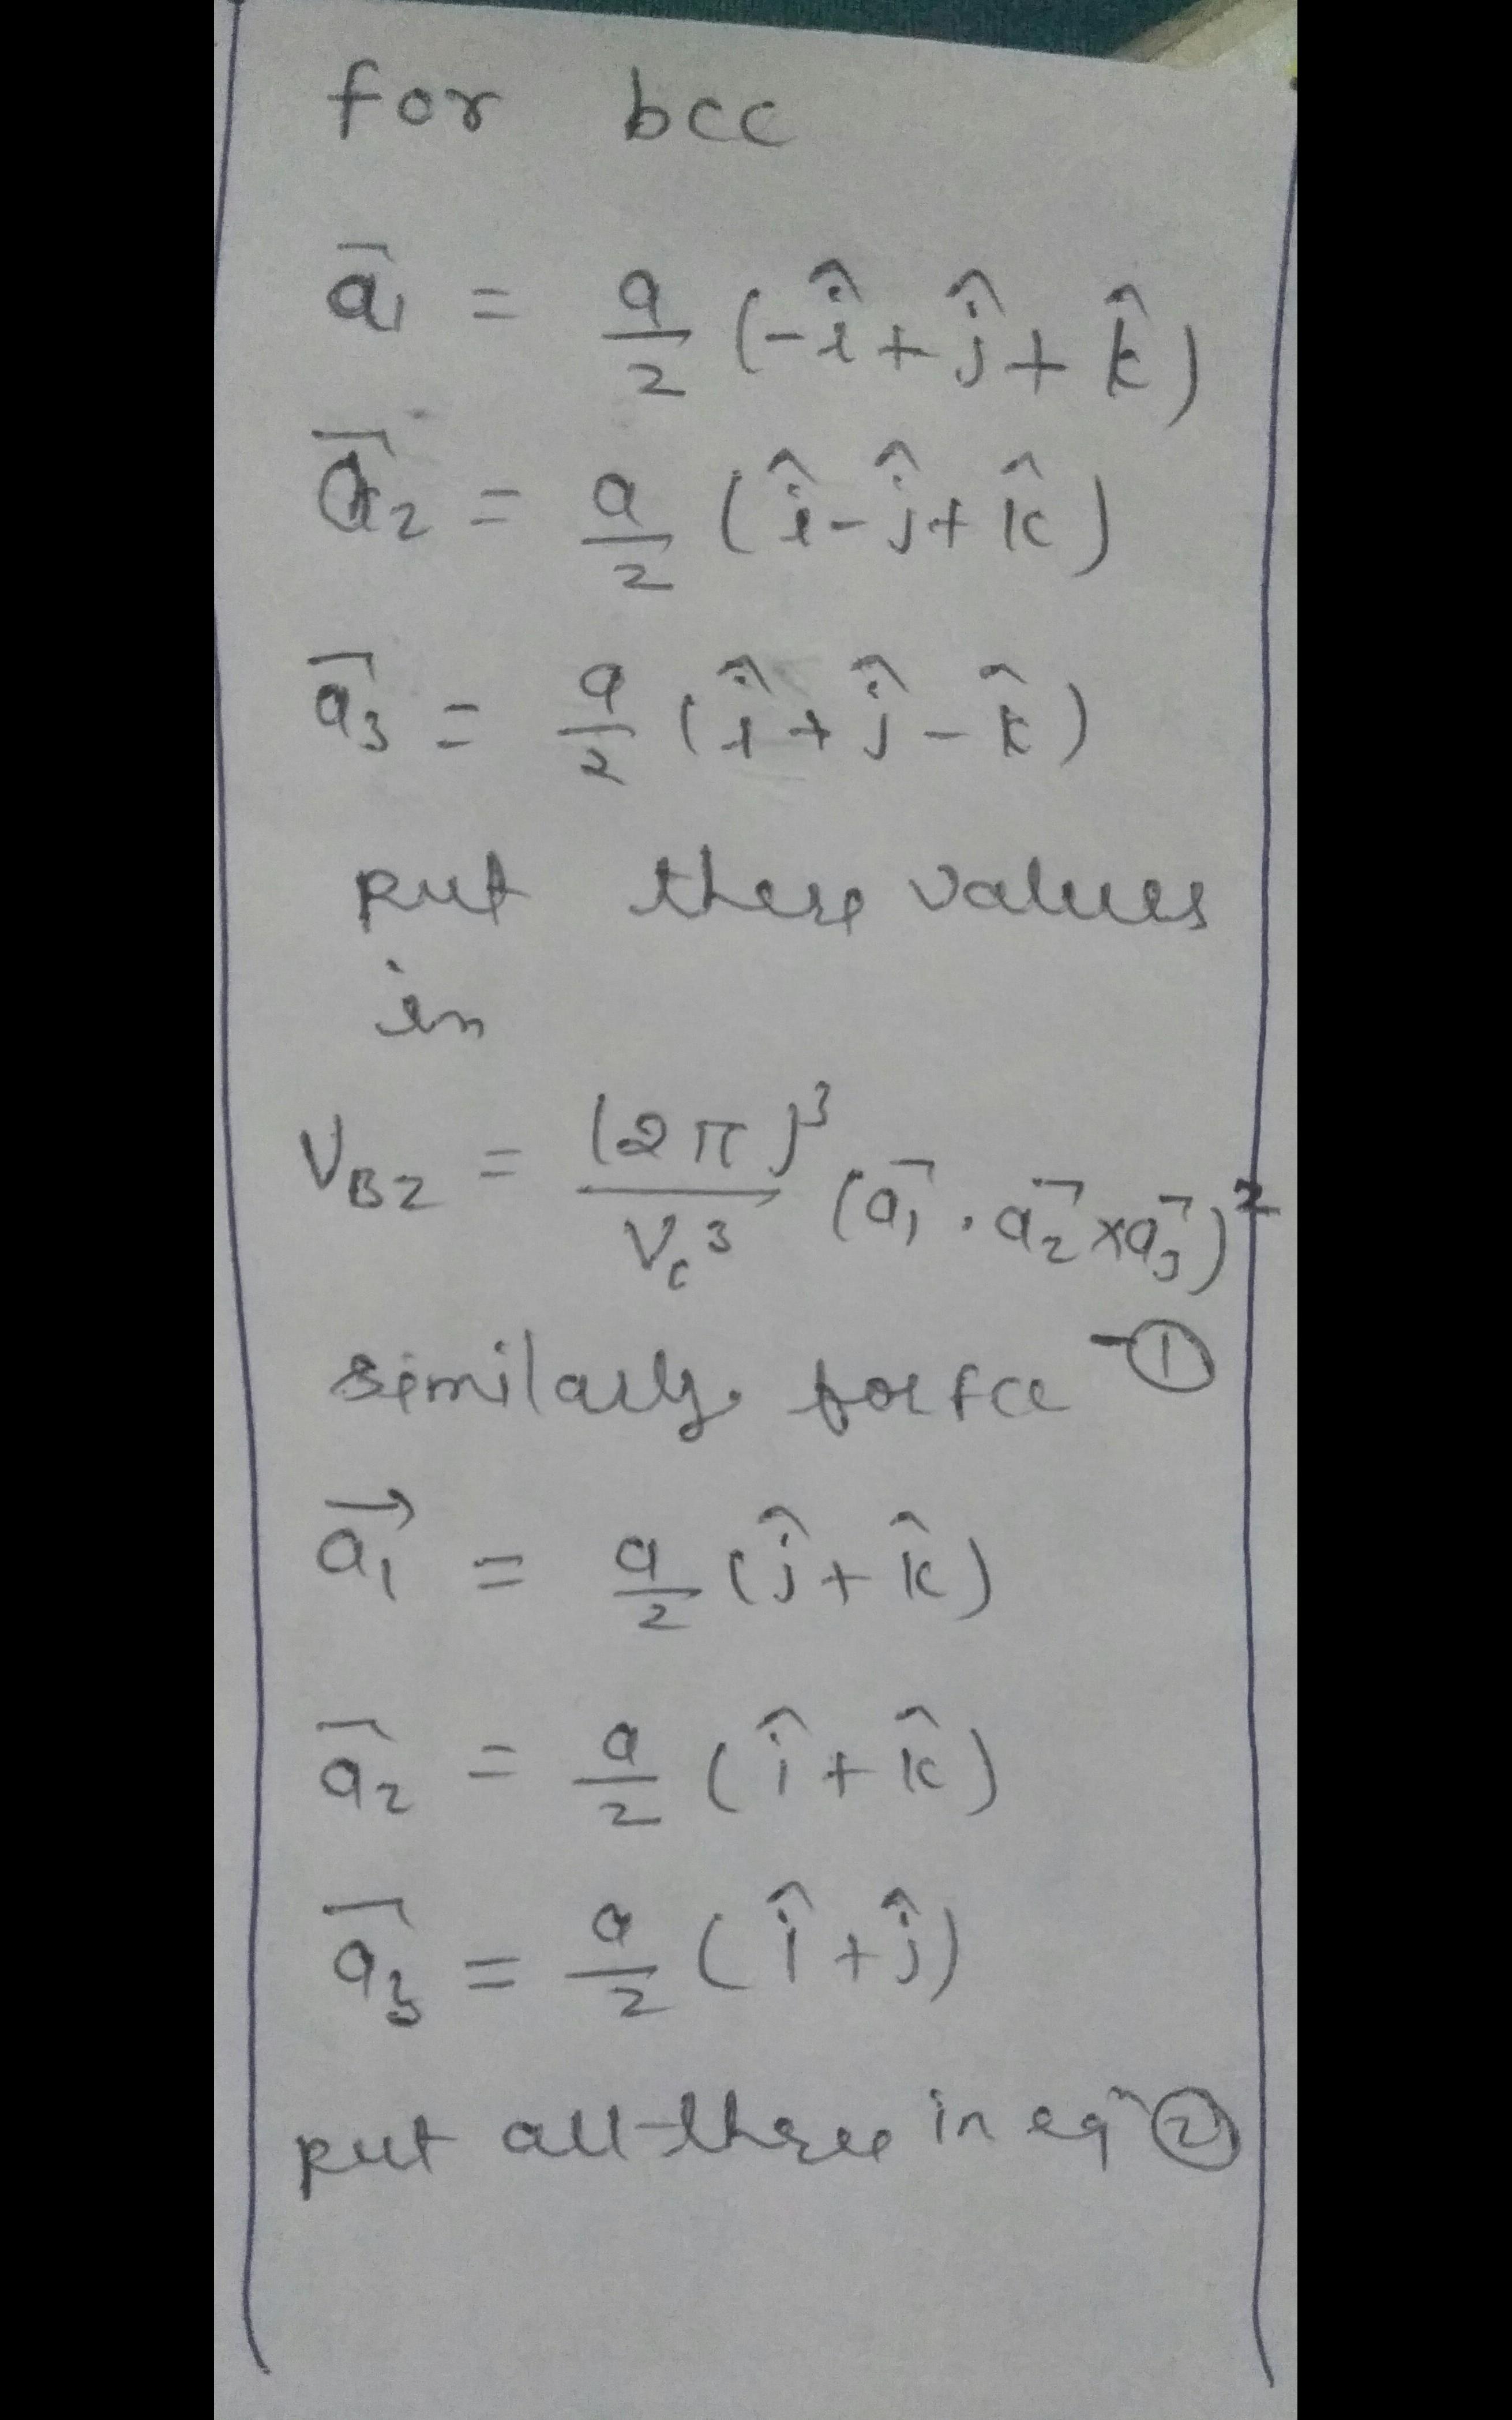 for bcc
a⃗₁ = a/2 (-î + ĵ + k̂)
a⃗₂ = a/2 (î - ĵ + k̂)
a⃗₃ = a/2 (î + ĵ - k̂)
put these values
in
V_BZ = (2π)³/V_c³ (a⃗₁ . a⃗₂ × a⃗₃)²
similarly for fcc -①
a⃗₁ = a/2 (ĵ + k̂)
a⃗₂ = a/2 (î + k̂)
a⃗₃ = a/2 (î + ĵ)
put all these in eqⁿ ②